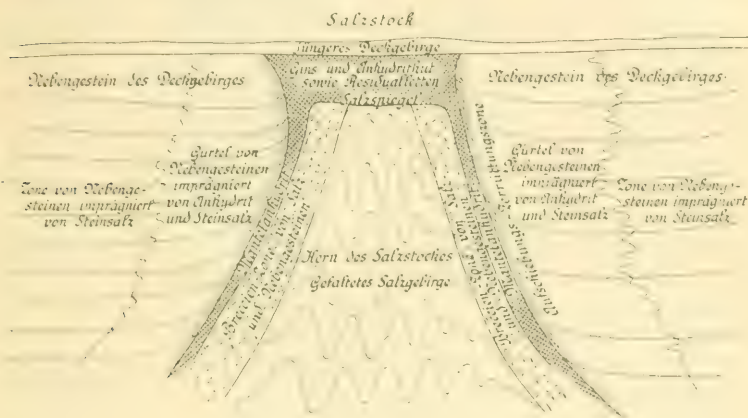 Salzstock
Jüngeres Deckgebirge
Nebengestein des Deckgebirges
Gips und Anhydrithut
sowie Residualletten
Salzspiegel
Nebengestein des Deckgebirges.
Gürtel von
Nebengesteinen
imprägniert
von Anhydrit
und Steinsalz
Zone von Nebenge-
steinen imprägniert
von Steinsalz
Mantelanhydrit
Breccien Zone von Salz
und Nebengesteinen
Kern des Salzstockes
Gefaltetes Salzgebirge
Breccien Zone von Salz
und Nebengesteinen
Mantelanhydrit
Aufschiebungs-Zerrüttungszone
Gürtel von
Nebengesteinen
imprägniert
von Anhydrit
und Steinsalz
Zone von Nebenge-
steinen imprägniert
von Steinsalz